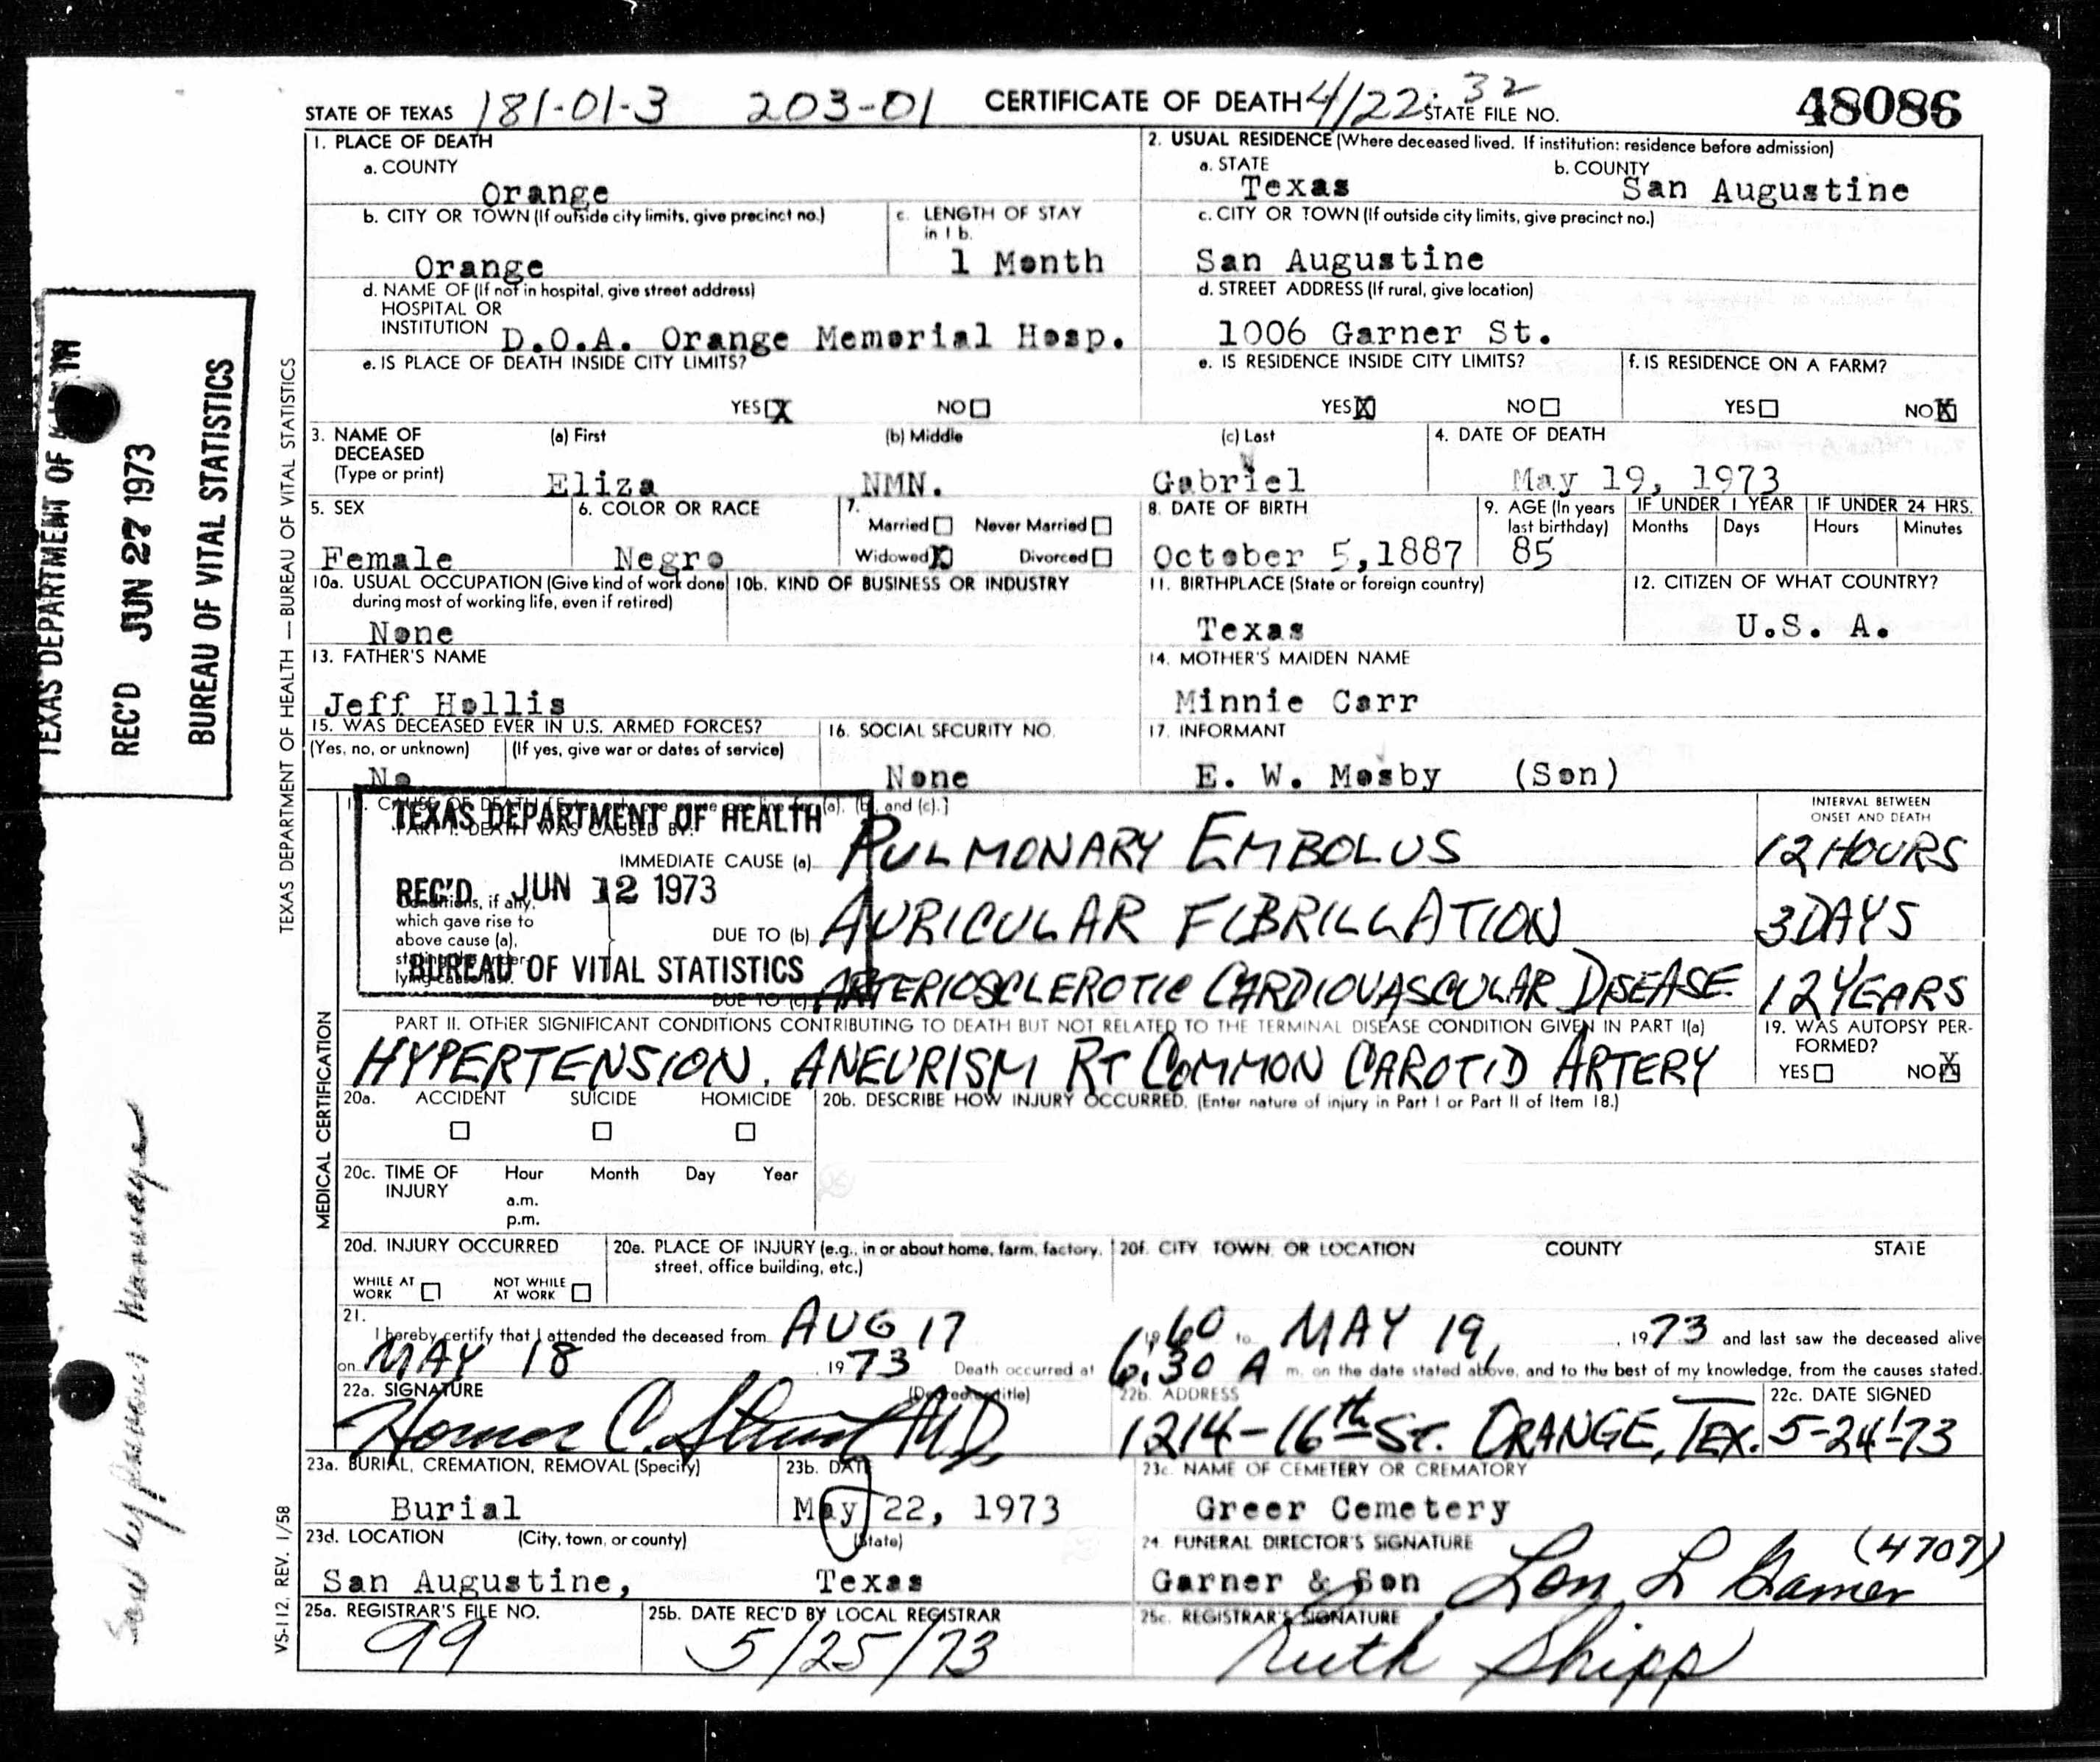 STATE OF TEXAS 181-01-3 203-01 CERTIFICATE OF DEATH 4/22 32 STATE FILE NO. 48086
1. PLACE OF DEATH
a. COUNTY
Orange
2. USUAL RESIDENCE (Where deceased lived. If institution: residence before admission)
a. STATE
Texas
b. COUNTY
San Augustine
b. CITY OR TOWN (If outside city limits, give precinct no.)
Orange
c. LENGTH OF STAY
in 1 b.
1 Month
c. CITY OR TOWN (If outside city limits, give precinct no.)
San Augustine
d. NAME OF (If not in hospital, give street address)
HOSPITAL OR
INSTITUTION D.O.A. Orange Memorial Hosp.
d. STREET ADDRESS (If rural, give location)
1006 Garner St.
e. IS PLACE OF DEATH INSIDE CITY LIMITS?
YES X NO
e. IS RESIDENCE INSIDE CITY LIMITS?
YES X NO
f. IS RESIDENCE ON A FARM?
YES NO X
3. NAME OF
DECEASED
(Type or print)
(a) First (b) Middle (c) Last
Eliza NMN. Gabriel
4. DATE OF DEATH
May 19, 1973
5. SEX
Female
6. COLOR OR RACE
Negro
7.
Married Never Married
Widowed X Divorced
8. DATE OF BIRTH
October 5,1887
9. AGE (In years
last birthday)
85
IF UNDER 1 YEAR
Months Days
IF UNDER 24 HRS.
Hours Minutes
10a. USUAL OCCUPATION (Give kind of work done
during most of working life, even if retired)
None
10b. KIND OF BUSINESS OR INDUSTRY
11. BIRTHPLACE (State or foreign country)
Texas
12. CITIZEN OF WHAT COUNTRY?
U.S. A.
13. FATHER'S NAME
Jeff Hollis
14. MOTHER'S MAIDEN NAME
Minnie Carr
15. WAS DECEASED EVER IN U.S. ARMED FORCES?
(Yes, no, or unknown) (If yes, give war or dates of service)
No
16. SOCIAL SECURITY NO.
None
17. INFORMANT
E. W. Mosby (Son)
CAUSE OF DEATH (a), (b), and (c).]
PART I. DEATH WAS CAUSED BY:
TEXAS DEPARTMENT OF HEALTH
REC'D JUN 12 1973
BUREAU OF VITAL STATISTICS
IMMEDIATE CAUSE (a) PULMONARY EMBOLUS
Conditions, if any,
which gave rise to
above cause (a),
stating the under-
lying cause last.
DUE TO (b) AURICULAR FIBRILLATION
DUE TO (c) ARTERIOSCLEROTIC CARDIOVASCULAR DISEASE
INTERVAL BETWEEN
ONSET AND DEATH
12 HOURS
3 DAYS
12 YEARS
PART II. OTHER SIGNIFICANT CONDITIONS CONTRIBUTING TO DEATH BUT NOT RELATED TO THE TERMINAL DISEASE CONDITION GIVEN IN PART I(a)
HYPERTENSION. ANEURISM RT COMMON CAROTID ARTERY
19. WAS AUTOPSY PER-
FORMED?
YES NO X
20a. ACCIDENT SUICIDE HOMICIDE
20b. DESCRIBE HOW INJURY OCCURRED. (Enter nature of injury in Part I or Part II of Item 18.)
20c. TIME OF
INJURY
Hour Month Day Year
a.m.
p.m.
20d. INJURY OCCURRED
WHILE AT
WORK
NOT WHILE
AT WORK
20e. PLACE OF INJURY (e.g., in or about home, farm, factory,
street, office building, etc.)
20f. CITY TOWN, OR LOCATION COUNTY STATE
21.
I hereby certify that I attended the deceased from AUG 17 1960 to MAY 19, 1973 and last saw the deceased alive
on MAY 18 1973 Death occurred at 6:30 A m. on the date stated above, and to the best of my knowledge, from the causes stated.
22a. SIGNATURE (Degree or title)
Homer C. MD
22b. ADDRESS
1214-16th St. ORANGE, TEX.
22c. DATE SIGNED
5-24-'73
23a. BURIAL, CREMATION, REMOVAL (Specify)
Burial
23b. DATE
May 22, 1973
23c. NAME OF CEMETERY OR CREMATORY
Greer Cemetery
23d. LOCATION (City, town, or county) (State)
San Augustine, Texas
24. FUNERAL DIRECTOR'S SIGNATURE
Garner & Son Lon L Garner (4707)
25a. REGISTRAR'S FILE NO.
99
25b. DATE REC'D BY LOCAL REGISTRAR
5/25/73
25c. REGISTRAR'S SIGNATURE
Ruth Shipp
TEXAS DEPARTMENT OF HEALTH — BUREAU OF VITAL STATISTICS
MEDICAL CERTIFICATION
VS-112, REV. 1/58
TEXAS DEPARTMENT OF
REC'D JUN 27 1973
BUREAU OF VITAL STATISTICS
Son by marriage